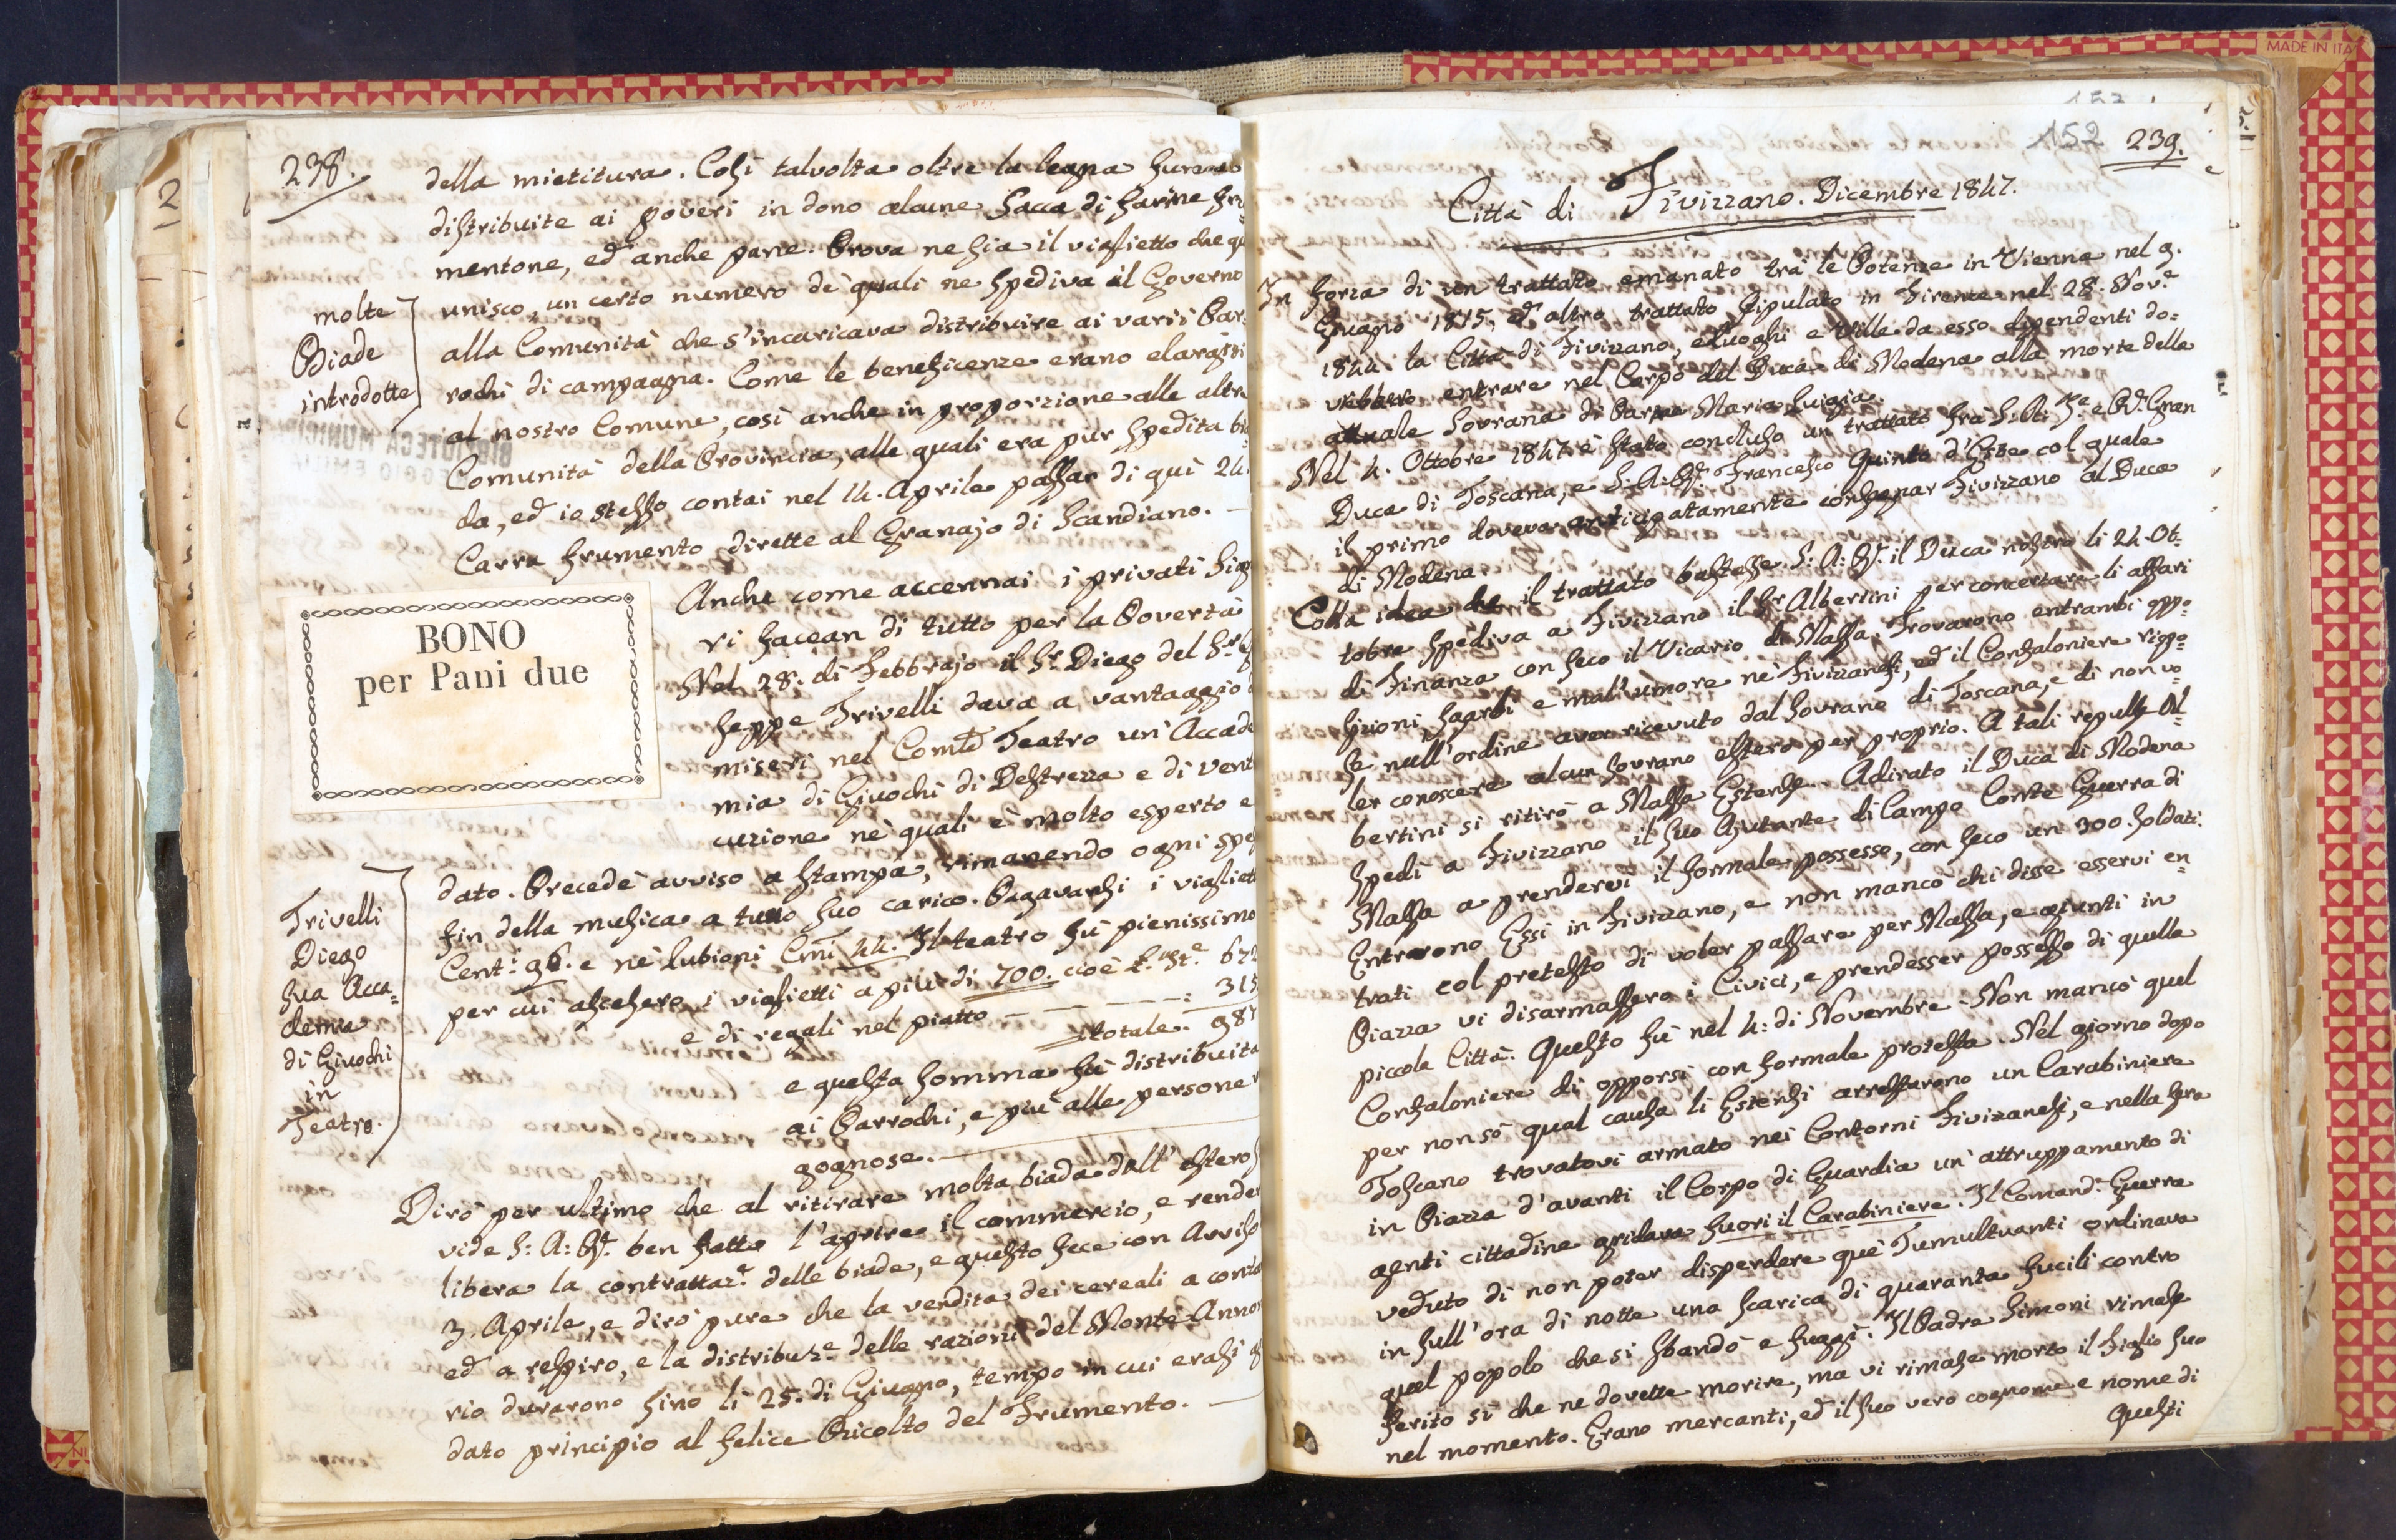 238.
della mietitura. Così talvolta oltre la legna furono
distribuite ai poveri in dono alcune Sacca di farine fru=
mentone, ed anche pane. Prova ne sia il viglietto che qu
unisco, un certo numero de' quali ne spediva il Governo
alla Comunità che s'incaricava distribuire ai varii Par=
rochi di campagna. Come le beneficenze erano elargite
al nostro Comune, così anche in proporzione alle altre
Comunità della Provincia, alle quali era pur spedita bia
da, ed io stesso contai nel 14. Aprile passar di quì 24.
Carra frumento dirette al Granajo di Scandiano. —
molte
Biade
introdotte
BONO
per Pani due
Anche come accennai i privati Sig
ri facean di tutto per la Povertà
Nel 28. di Febbrajo il Sr. Diego del Sr.
seppe Trivelli dava a vantaggio
miseri nel Comle Teatro un' Accade
mia di Giuochi di Destrezza e di vent
uzione ne' quali è molto esperto e
dato. Precedè avviso a stampa, rimanendo ogni spe
fin della musica a tutto suo carico. Pagavansi i vigliett
Cent.i 96. e nè lubioni Cmi 44. Il teatro fu pienissimo
per cui ascesero i viglietti a più di 700. cioè
e di regali nel piatto — — — — : 315
totale. 987
e questa somma fù distribuita
ai Parrochi, e più alle persone
gognose. —
Trivelli
Diego
sua Acca=
demia
di Giuochi
in
Teatro.
Dirò per ultimo che al ritirare molta biada dall' estero
vide S: A: R. ben fatto l'aprire il commercio, e render
libera la contrattaz.e delle biade, e questo fece con Avviso
3. Aprile, e dirò pure che la vendita dei cereali a conta
ed a respiro, e la distribuz.e delle razioni del Monte Anno
rio durarono fino li 25. di Giugno, tempo in cui erasi
dato principio al felice Ricolto del Frumento. —
152
239.
Città di Fivizzano. Dicembre 1847.
In forza di un trattato emanato trà le Potenze in Vienna nel 9.
Giugno 1815, ed altro trattato stipulato in Firenze nel 28. Nov.e
1844. la Città di Fivizzano, e luoghi e Ville da esso dipendenti do=
vebbero entrare nel Corpo del Duca di Modena alla morte della
attuale Sovrana di Parma Maria Luigia.
Nel 4. Ottobre 1847. è stato concluso un trattato frà S. A. I.e e R. Gran
Duca di Toscana, e S. A. R. Francesco Quinto d'Este col quale
il primo doveva anticipatamente consegnar Fivizzano al Duca
di Modena.
Colla idea che il trattato bastasse S: A: R. il Duca nostro li 24. Ot=
tobre spediva a Fivizzano il Sr. Albertini per concertare li affari
di Finanza con seco il Vicario di Massa. Trovarono entrambi oppo=
sizioni sgarbi e mal'umore ne' Fivizzanesi, ed il Confaloniere rispo=
se null'ordine aver ricevuto dal Sovrano di Toscana, e di non vo=
ler conoscere alcun Sovrano estero per proprio. A tali repulse Al=
bertini si ritirò a Massa Estense. Adirato il Duca di Modena
spedì a Fivizzano il suo Ajutante di Campo Conte Guerra di
Massa a prendervi il formale possesso, con seco un 300. soldati.
Entrarono Essi in Fivizzano, e non mancò chi disse esservi en=
trati col pretesto di voler passare per Massa, e giunti in
Piazza vi disarmassero i Civici, e prendesser possesso di quella
piccola Città. Questo fù nel 4: di Novembre. Non mancò quel
Confaloniere di opporsi con formale protesta. Nel giorno dopo
per non sò qual causa li Estensi arrestarono un Carabiniere
Toscano trovatovi armato nei Contorni Fivizzanesi, e nella sera
in Piazza d'avanti il Corpo di Guardia un' attruppamento di
genti cittadine gridava fuori il Carabiniere. Il Comand.e Guerra
veduto di non poter disperdere què Tumultuanti ordinava
in sull'ora di notte una scarica di quaranta fucili contro
quel popolo che si sbandò e fuggì. Il Padre Simoni rimase
ferito sì che ne dovette morire, ma vi rimase morto il figlio suo
nel momento. Erano mercanti, ed il suo vero cognome e nome di
questi
MADE IN ITA